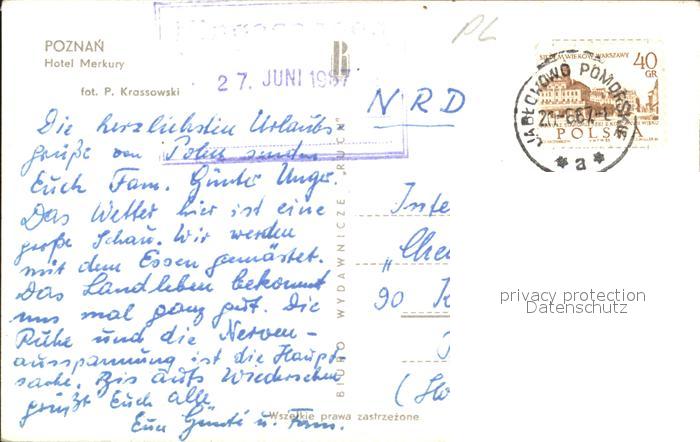 POZNAŃ
Hotel Merkury
fot. P. Krassowski
27. JUNI 1967
PL
NRD
SIEDEM WIEKÓW WARSZAWY
40
GR
POLSKA
JABŁECHOWO POMORSKIE
a
Die herzlichsten Urlaubs
grüße von Polen senden
Euch Fam. Günter Unger.
Das Wetter hier ist eine
große Schau. Wir werden
mit dem Essen gemästet.
Das Landleben bekommt
uns mal ganz gut. Die
Ruhe und die Nerven-
ausspannung ist die Haupt
sache. Bis aufs Wiedersehen
grüßt Euch alle
Eure Günter u. Fam.
BIURO WYDAWNICZE „RUCH"
Inte
„Che
90 K
(Ho
privacy protection
Datenschutz
Wszelkie prawa zastrzeżone